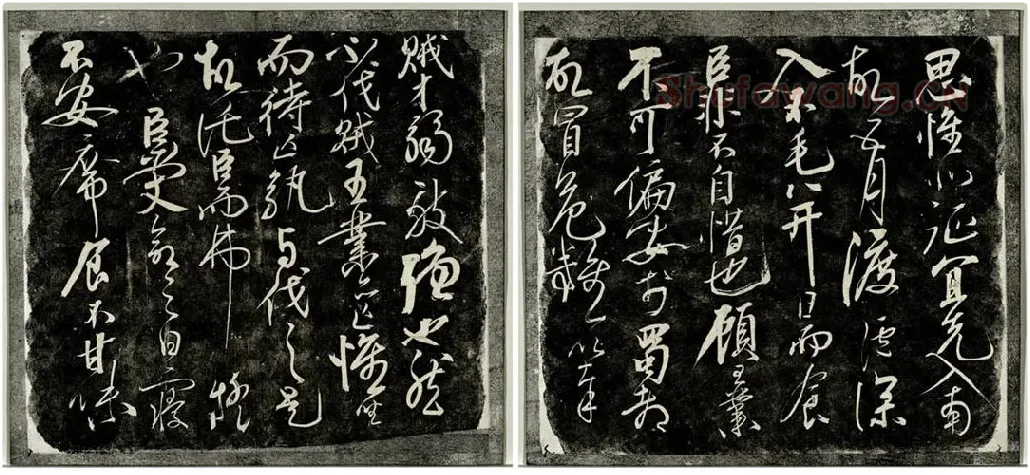 賊才弱敵強也然
不伐賊王業亦亡惟坐
而待亡孰與伐之是
故託臣而弗疑
也臣受命之日寢
不安席食不甘味
思惟北征宜先入南
故五月渡瀘深
入不毛并日而食
臣非不自惜也顧王業
不可偏安於蜀都
故冒危難以奉
Shufawang.CN